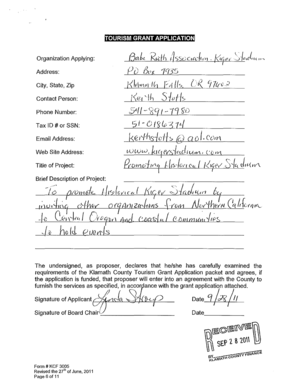 TOURISM GRANT APPLICATION
Organization Applying: Babe Ruth Association, Kiger Stadium
Address: PO Box 7985
City, State, Zip Klamath Falls OR 97602
Contact Person: Keith Stotts
Phone Number: 541-891-7980
Tax ID # or SSN: 51-0186374
Email Address: keithstotts@aol.com
Web Site Address: www.kigerstadium.com
Title of Project: Promoting Historical Kiger Stadium
Brief Description of Project:
To promote Historical Kiger Stadium by
inviting other organizations from Northern California
to Central Oregon and coastal communities
to hold events
The undersigned, as proposer, declares that he/she has carefully examined the
requirements of the Klamath County Tourism Grant Application packet and agrees, if
the application is funded, that proposer will enter into an agreement with the County to
furnish the services as specified, in accordance with the grant application attached.
Signature of Applicant Date 9/28/11
Signature of Board Chair Date
RECEIVED
SEP 28 2011
Form # KCF 3000
Revised the 27th of June, 2011
Page 8 of 11